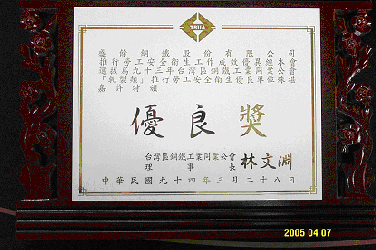 盛餘鋼鐵股份有限公司
推行勞工安全衛生工作成效優異經本會
選拔為九十三年台灣區鋼鐵工業同業公會
「軋製類」推行勞工安全衛生優良單位殊甚
嘉許特頒
優良獎
台灣區鋼鐵工業同業公會
理事長 林文淵
中華民國九十四年三月二十八日
2005 04 07